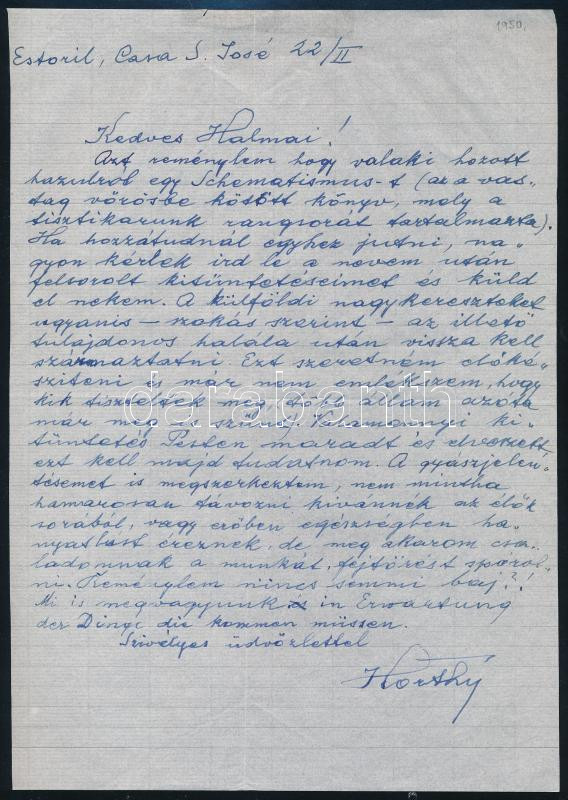 1950.
Estoril, Casa S. José 22/II
Kedves Halmai!
Azt reménylem hogy valaki hozott
hazulról egy Schematismus-t (az a vas-
tag vörösbe kötött könyv, mely a
tisztikarunk rangsorát tartalmazta).
Ha hozzátudnál egyhez jutni, na-
gyon kérlek ird le a nevem után
felsorolt kitüntetéseimet és küld
el nekem. A külföldi nagykereszteket
ugyanis – szokás szerint – az illető
tulajdonos halála után vissza kell
származtatni Ezt szeretném előké-
sziteni is már nem emlékszem, hogy
kik tiszteltek meg, (több állam azóta
már meg is szünt). Valamennyi ki-
tüntetés Pesten maradt és elveszett
ezt kell majd tudatnom. A gyászjelen-
tésemet is megszerkeztem, nem mintha
hamarosan távozni kivánnék az élők
sorából, vagy erőben egészségben ha-
nyatlast éreznek, de meg akarom csa-
ladomnak a munkát, fejtörést spórol-
ni. Reménylem nincs semmi baj?!
Mi is megvagyunk és in Erwartung
der Dinge die kommen müssen.
Szivélyes üdvözlettel
Horthy
darabanth